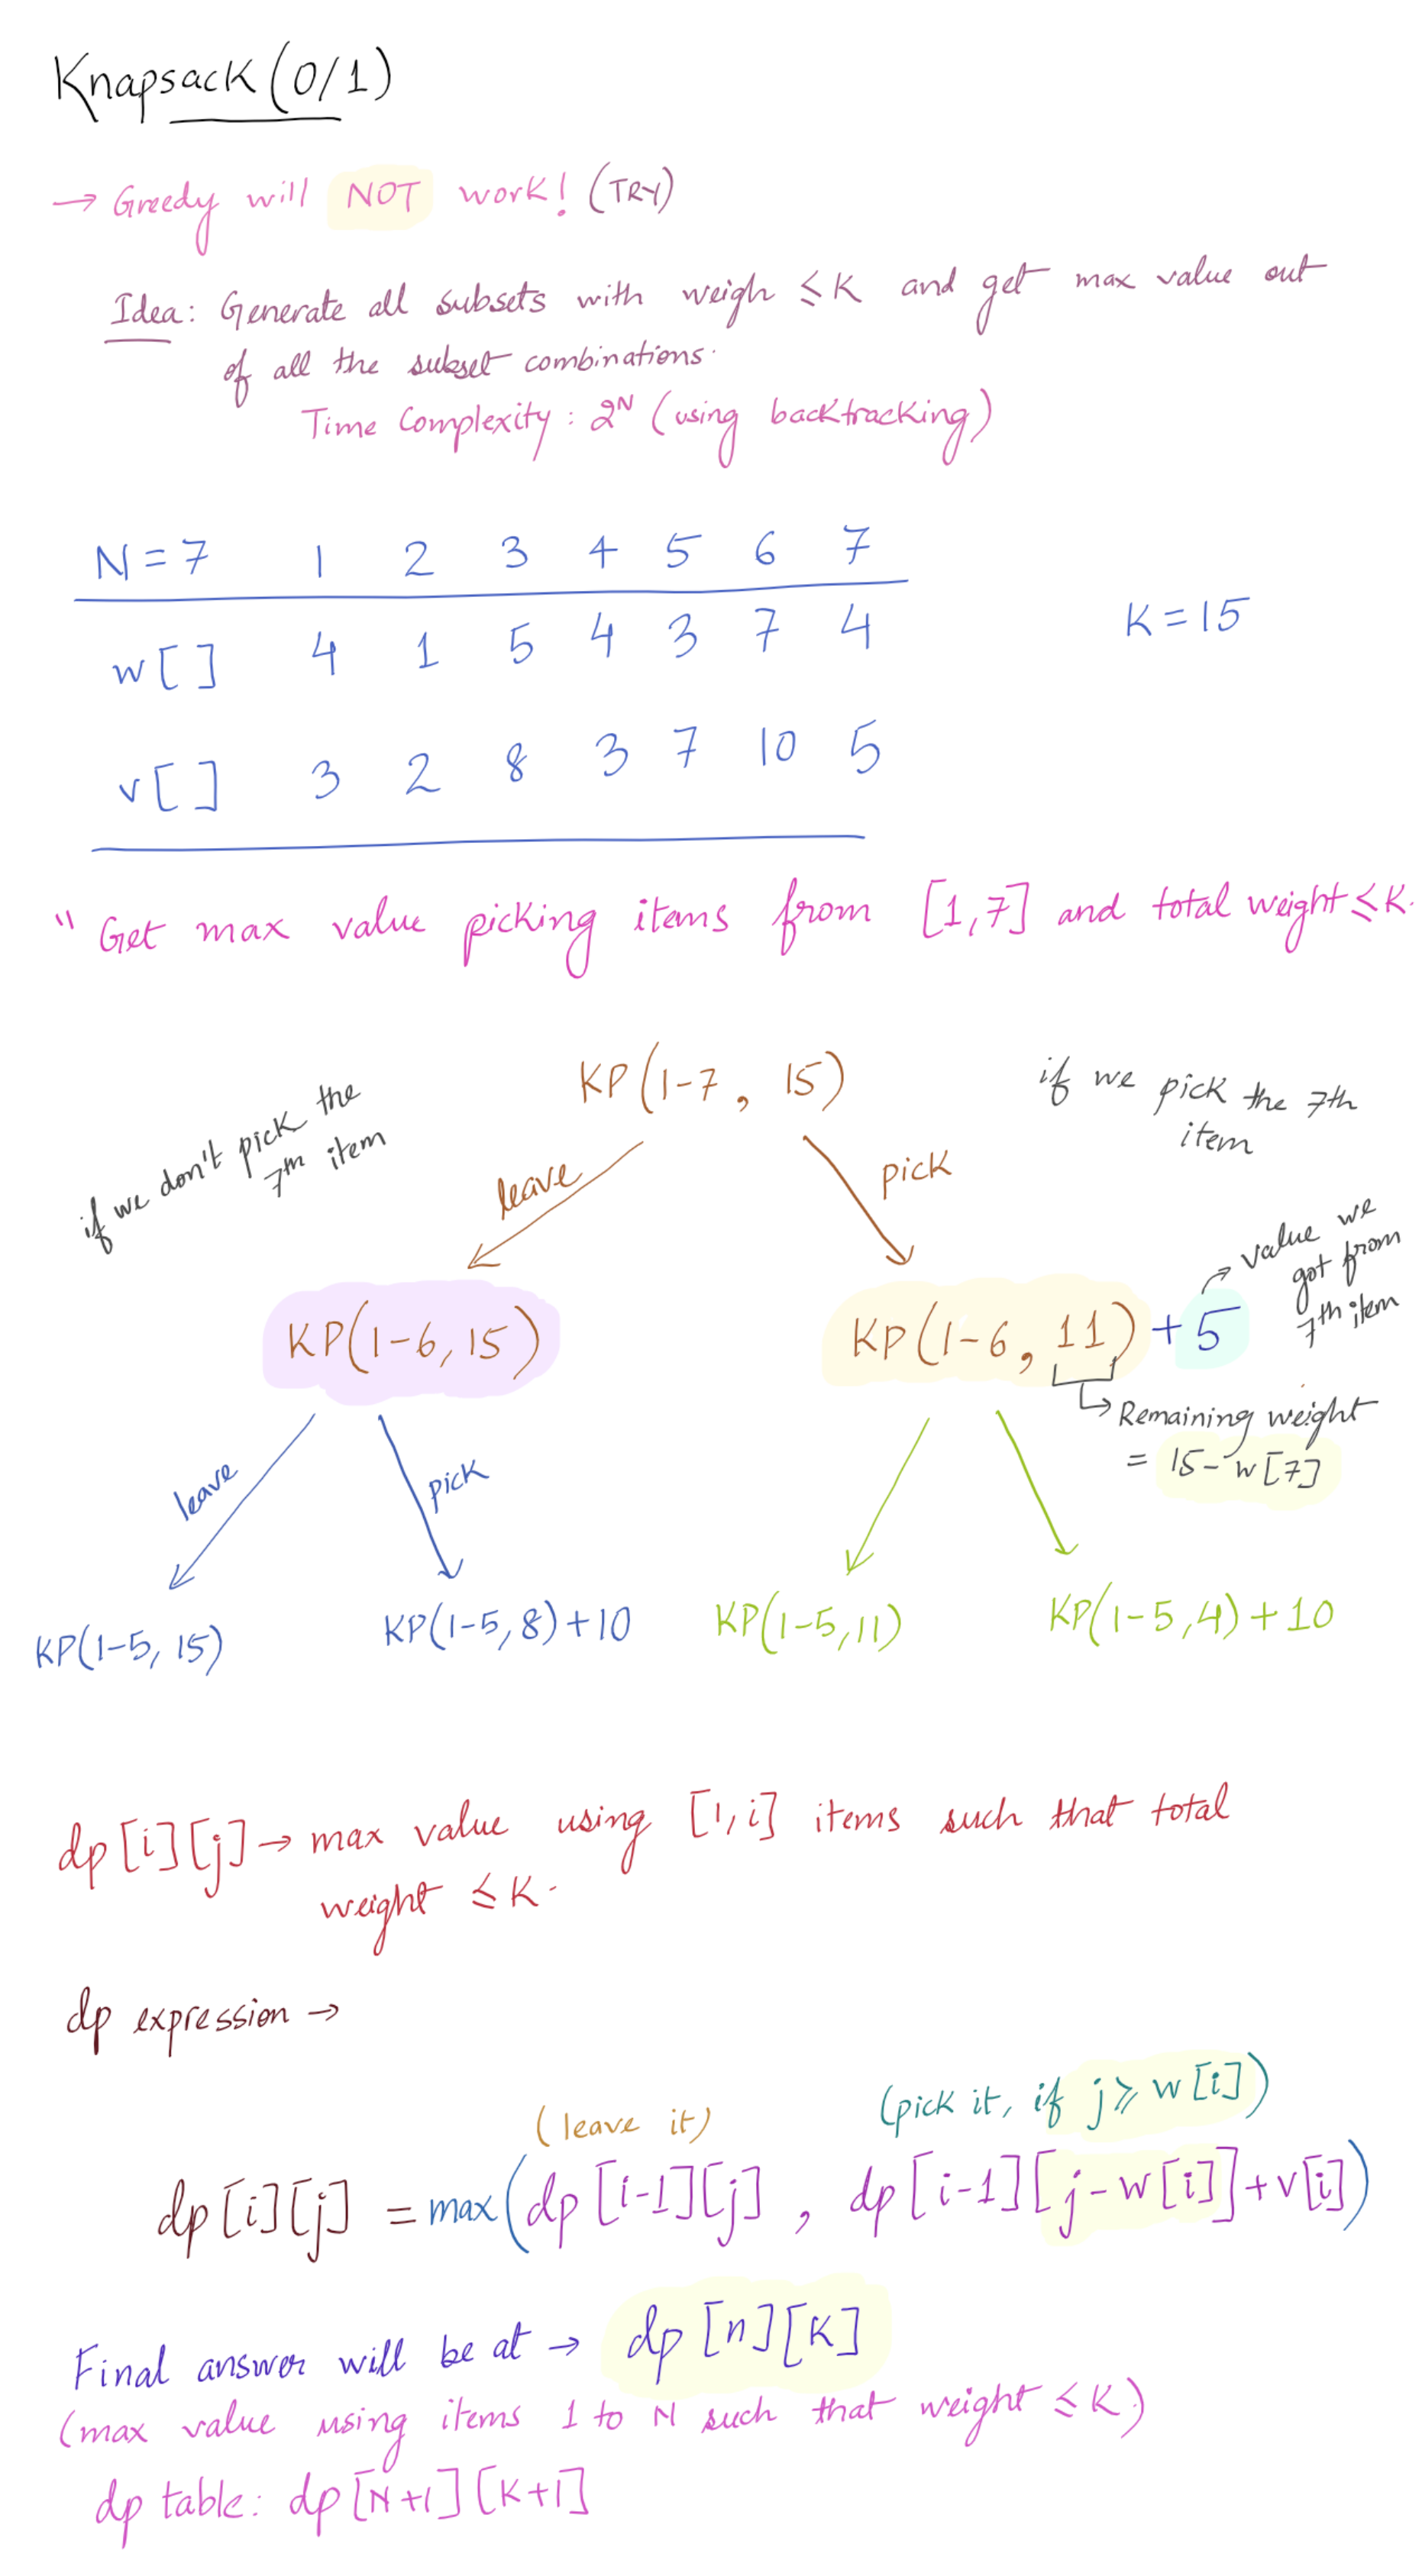 Knapsack (0/1)
→ Greedy will NOT work! (TRY)
Idea: Generate all subsets with weigh ≤ K and get max value out
of all the subset combinations.
Time Complexity: 2^N (using backtracking)
N = 7 1 2 3 4 5 6 7
w[] 4 1 5 4 3 7 4
K = 15
v[] 3 2 8 3 7 10 5
" Get max value picking items from [1,7] and total weight ≤ K.
KP(1-7, 15)
if we don't pick the
7th item
if we pick the 7th
item
leave
pick
KP(1-6, 15)
KP(1-6, 11) + 5
value we
got from
7th item
Remaining weight
= 15 - w[7]
leave
pick
KP(1-5, 15)
KP(1-5, 8) + 10
KP(1-5, 11)
KP(1-5, 4) + 10
dp[i][j] → max value using [1, i] items such that total
weight ≤ K.
dp expression →
(leave it)
(pick it, if j ≥ w[i])
dp[i][j] = max(dp[i-1][j], dp[i-1][j-w[i]]+v[i])
Final answer will be at → dp[n][K]
(max value using items 1 to N such that weight ≤ K)
dp table: dp[N+1][K+1]